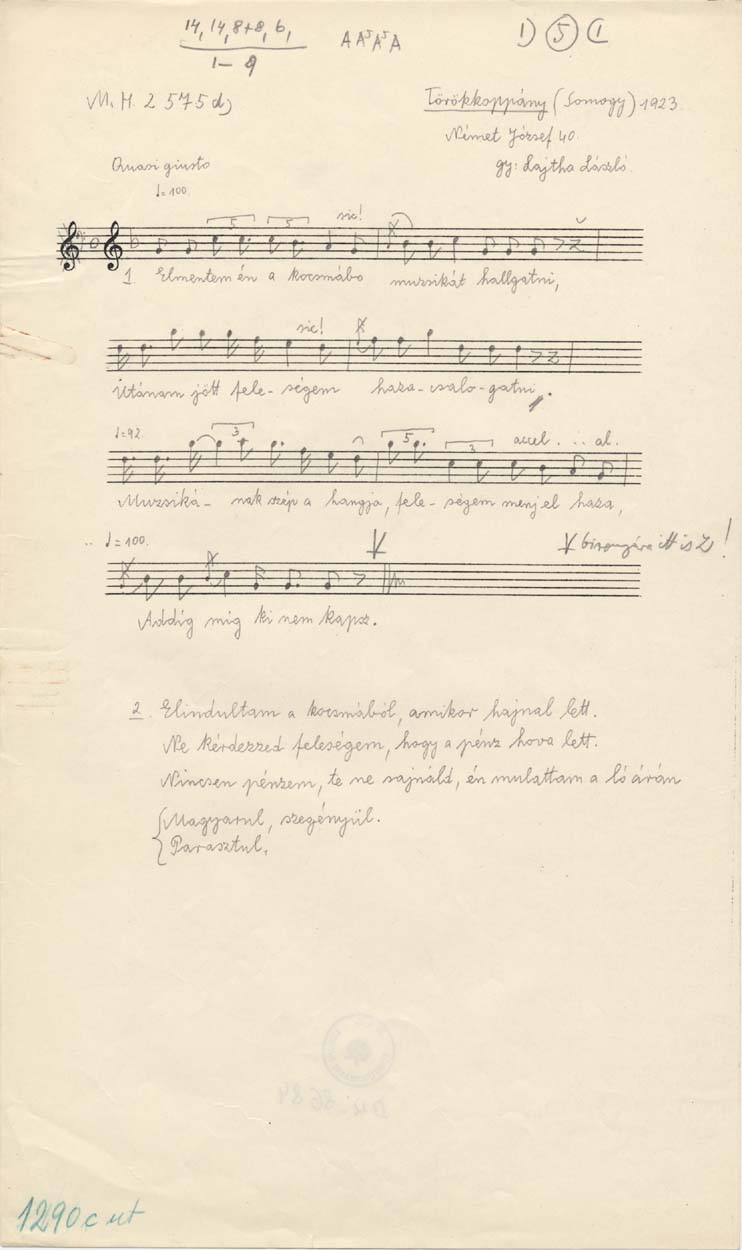 14, 14, 8+8, 6,
1– 9
A A⁵ A⁵ A
1) 5 (1
M. H. 2575 d)
Törökkoppány (Somogy) 1923.
Német József 40.
gy: Lajtha László.
Quasi giusto
♩=100.
5 5 sic!
1 Elmentem én a kocsmábo muzsikát hallgatni,
sic!
Utánam jött fele- ségem haza- csalo- gatni.
♩=92. 3 5 3 accel. . . al.
Muzsiká- nak szép a hangja, fele- ségem menj el haza,
♩=100. V V bizonyára itt is !
Addig míg ki nem kapsz.
2. Elindultam a kocsmából, amikor hajnal lett.
Ne kérdezzed feleségem, hogy a pénz hova lett.
Nincsen pénzem, te ne sajnáld, én mulattam a ló árán
Magyarul, szegényül.
Parasztul,
1290 c ut